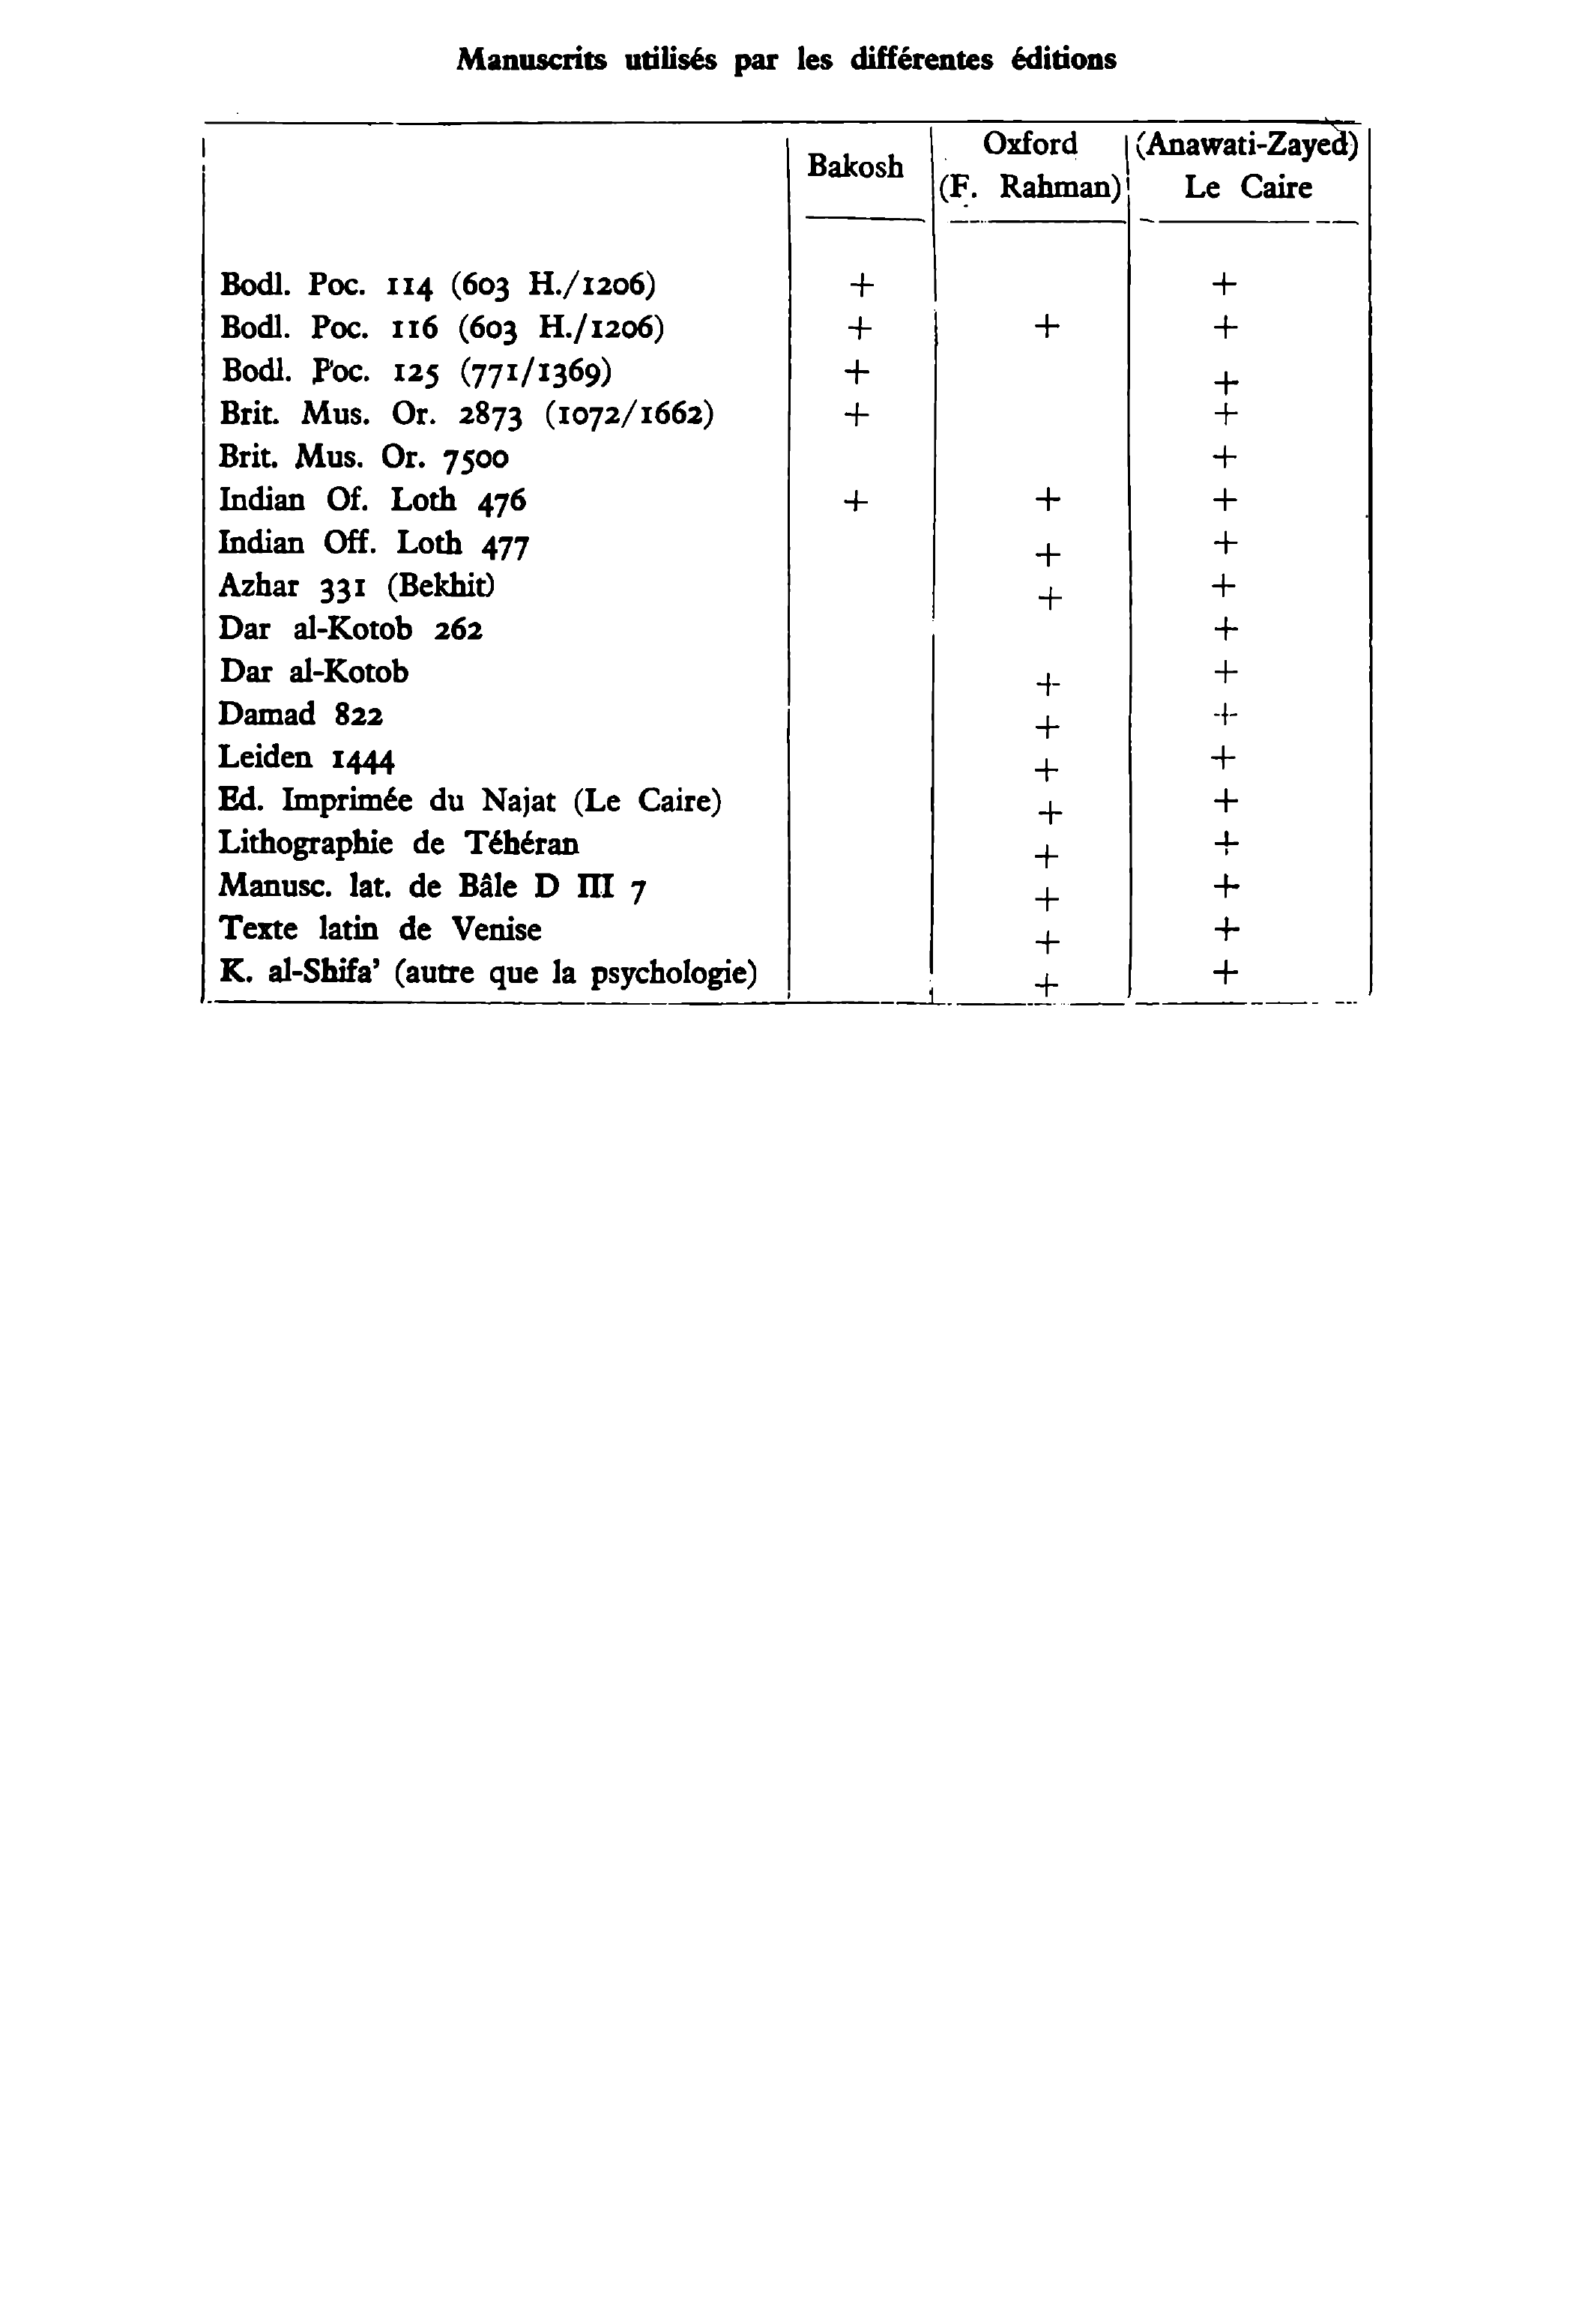 Manuscrits utilisés par les différentes éditions
Bakosh Oxford (Anawati-Zayed)
(F. Rahman) Le Caire
Bodl. Poc. 114 (603 H./1206) + +
Bodl. Poc. 116 (603 H./1206) + + +
Bodl. Poc. 125 (771/1369) + +
Brit. Mus. Or. 2873 (1072/1662) + +
Brit. Mus. Or. 7500 +
Indian Of. Loth 476 + + +
Indian Off. Loth 477 + +
Azhar 331 (Bekhit) + +
Dar al-Kotob 262 +
Dar al-Kotob + +
Damad 822 + +
Leiden 1444 + +
Ed. Imprimée du Najat (Le Caire) + +
Lithographie de Téhéran + +
Manusc. lat. de Bâle D III 7 + +
Texte latin de Venise + +
K. al-Shifa’ (autre que la psychologie) + +